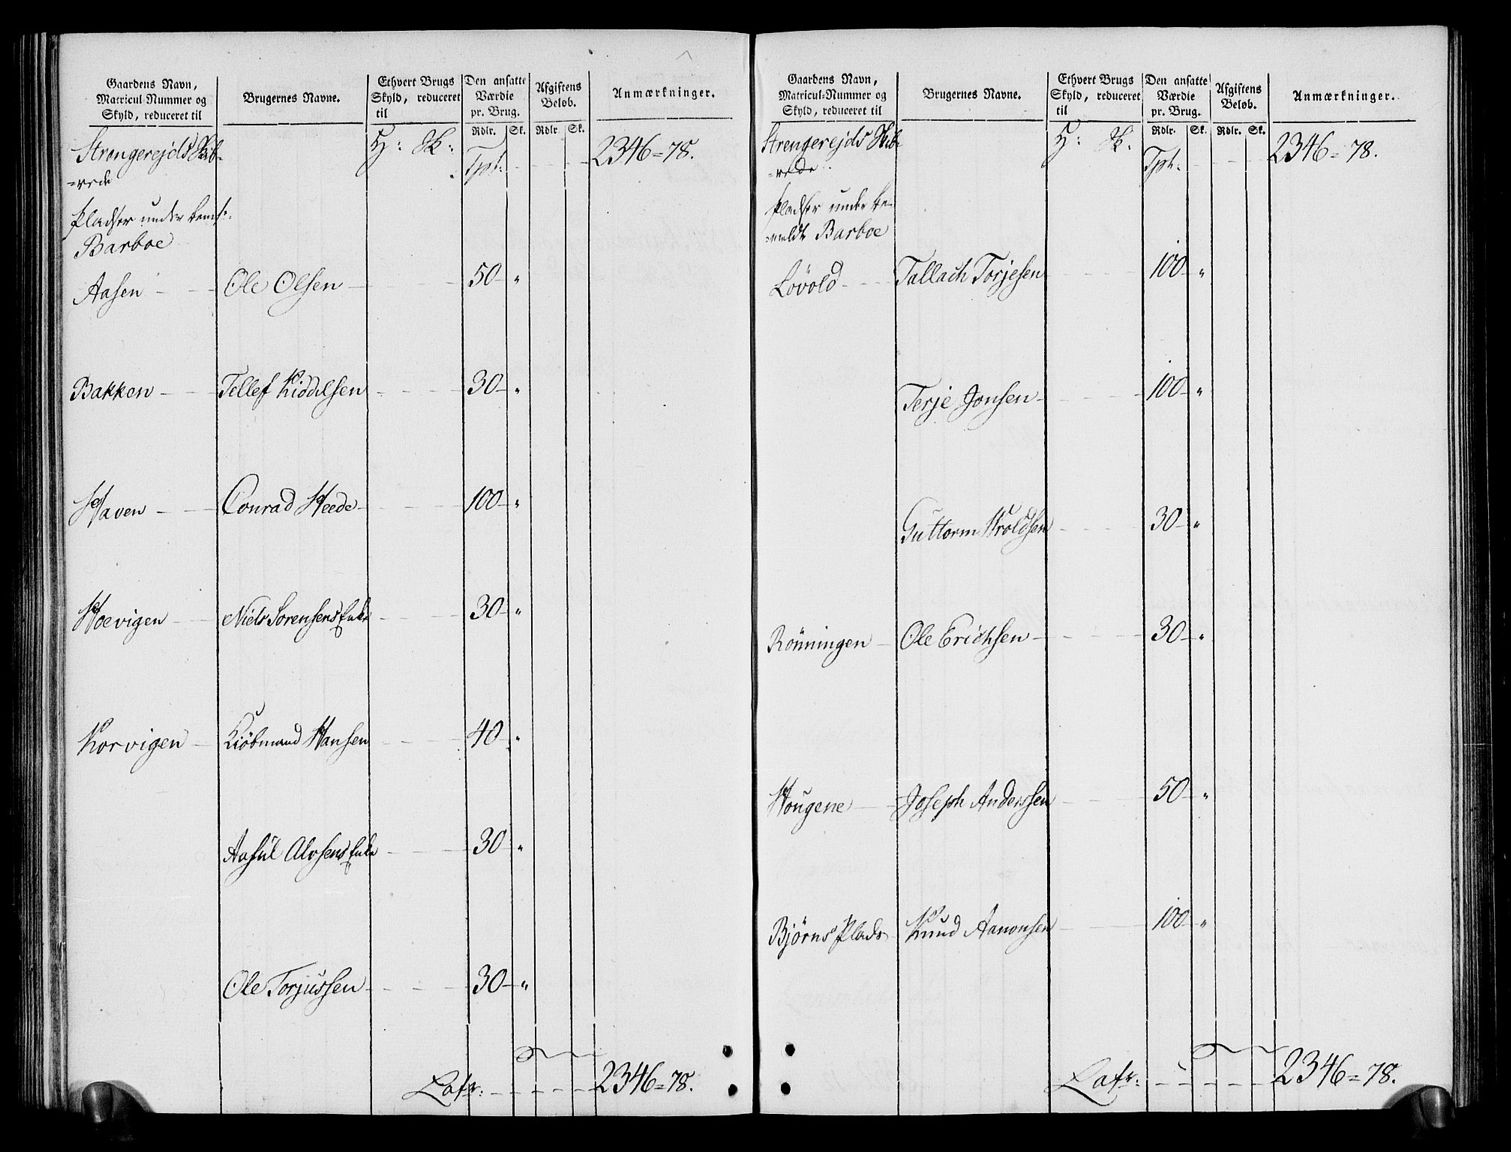 Gaardens Navn,
Matricul-Nummer og
Skyld, reduceret til
Brugernes Navne.
Ethvert Brugs
Skyld, reduceret
til
Den ansatte
Værdie
pr. Brug.
Afgiftens
Beløb.
Anmærkninger.
Rdlr. Sk. Rdlr. Sk.
Strengerejds Skib-
=rede
H: Sk: Tpt: - - - 2346=78.
Pladser under bemt:
Barboe
Aasen - - Ole Olsen - - - 50 - "
Bakken - - Tellef Kiddelsen - - - 30 - "
Haven - - Conrad Heede - - - 100 - "
Hoevigen - Niels Sorensens Enke - - - 30 - "
Korvigen - Kiøbmand Hansen - - - 40 - "
Aasul Alvsens Enke - - - 30 - "
Ole Torjussen - - - 30 - "
Latr: - - - - - 2346=78.
Gaardens Navn,
Matricul-Nummer og
Skyld, reduceret til
Brugernes Navne.
Ethvert Brugs
Skyld, reduceret
til
Den ansatte
Værdie
pr. Brug.
Afgiftens
Beløb.
Anmærkninger.
Rdlr. Sk. Rdlr. Sk.
Strengerejds Skib-
=rede
H: Sk: Tpt: - - - 2346=78.
Pladser under be-
=meldt Barboe
Lövold - - Tallach Torjesen - - - 100 - "
Terje Jonsen - - - 100 - "
Guttorm Hroldsen - - - 30 - "
Rönningen - Ole Erichsen - - - 30 - "
Hougene - Joseph Anderssen - - - 50 - "
Bjørns Plads - Knud Aanonsen - - - 100 - "
Latr: - - - - - 2346=78.